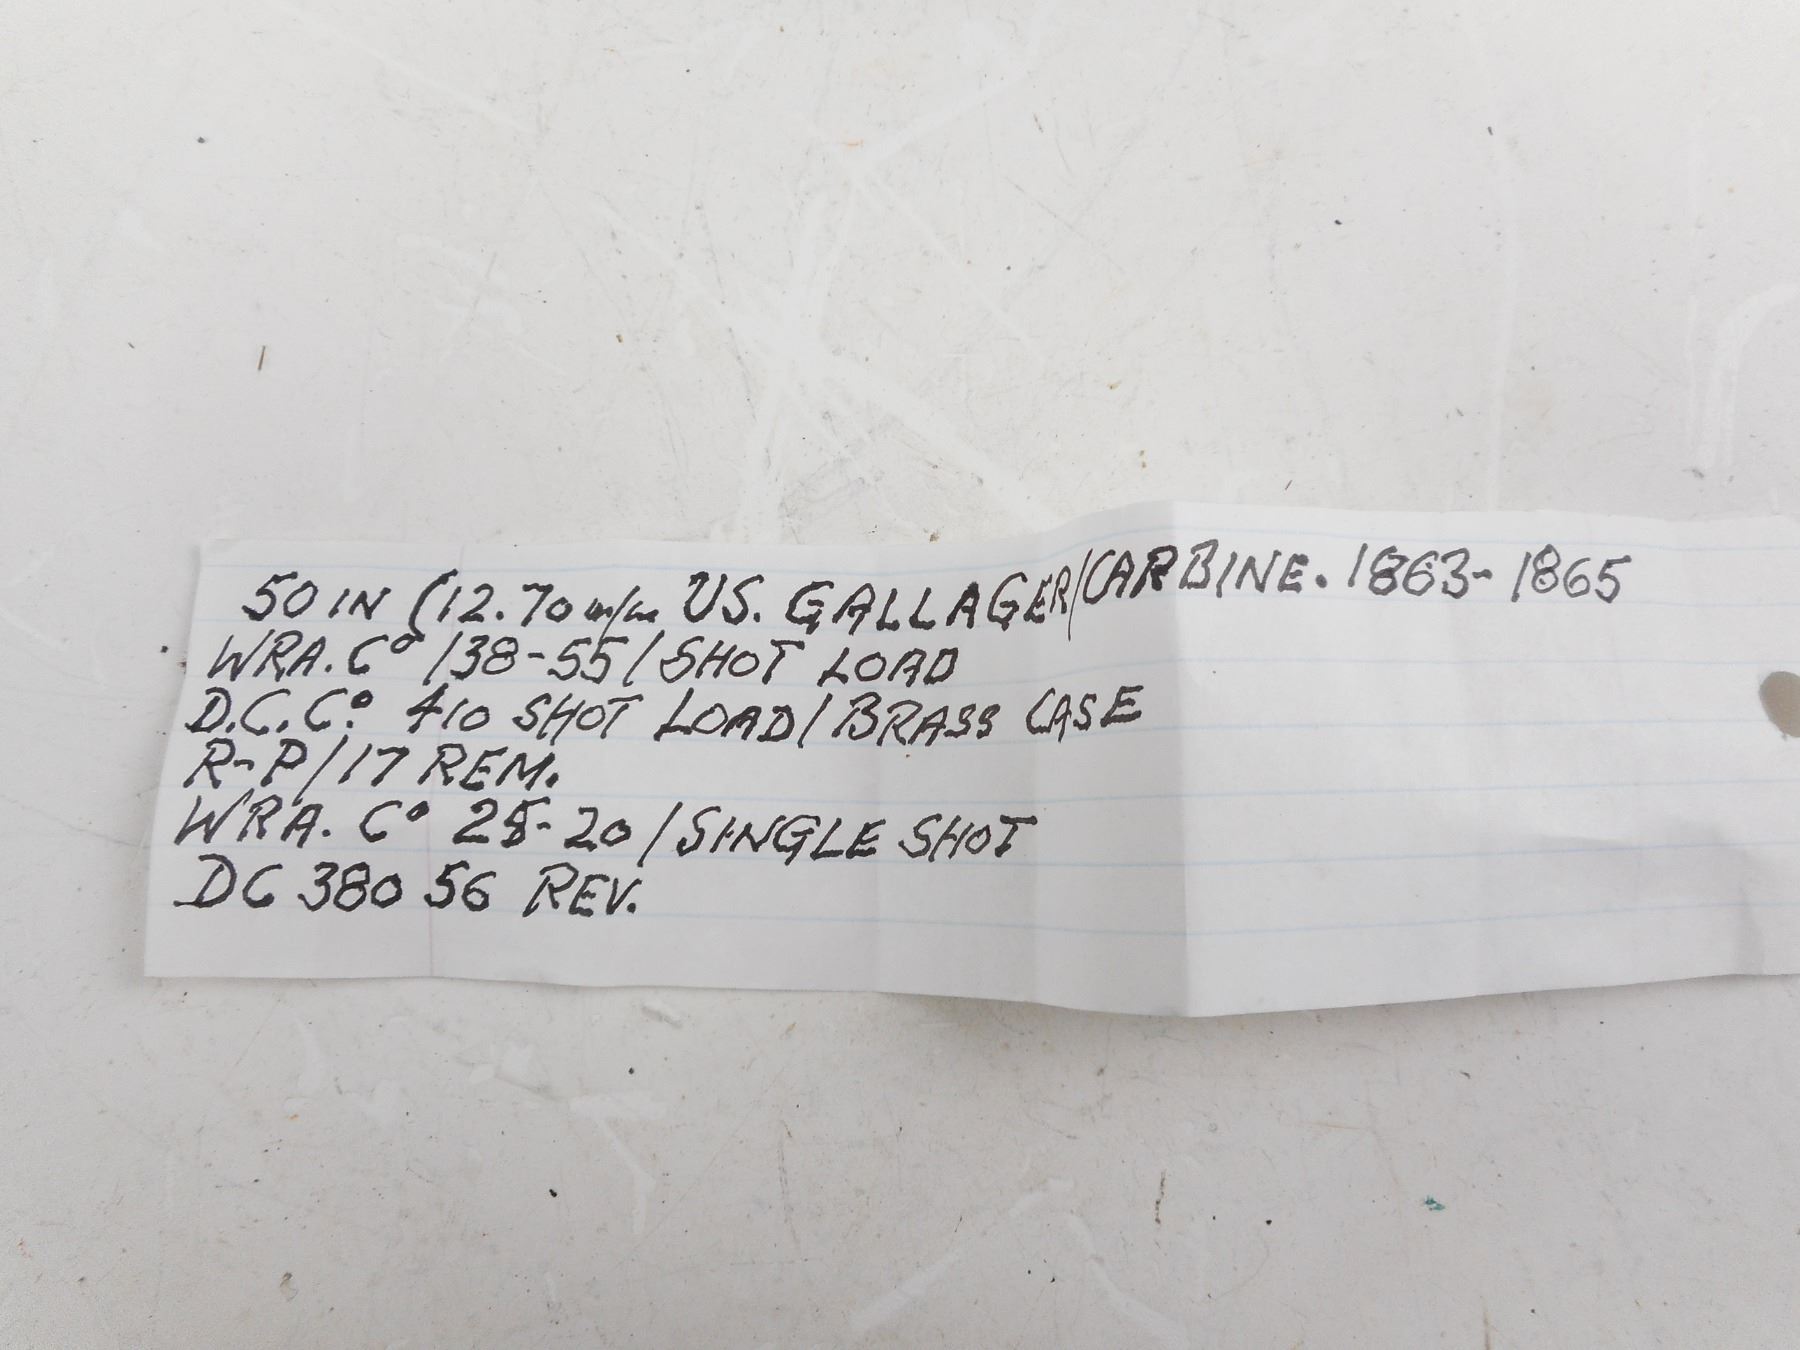 50 IN (12.70 m/m US. GALLAGER/CARBINE. 1863-1865
WRA. Cº /38-55/ SHOT LOAD
D.C. Cº. 410 SHOT LOAD/BRASS CASE
R-P/17 REM.
WRA. Cº 25-20/SINGLE SHOT
DC 380 56 REV.